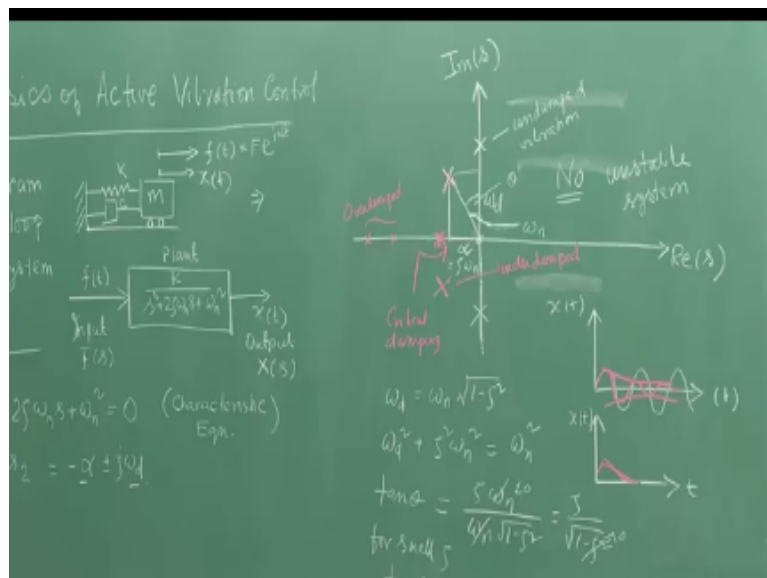 sics of Active Vibration Control
f(t) = Fe^jωt
x(t)
K
C
m
⇒
ram
loop
system
Plant
f(t)
K
s²+2ζωₙs+ωₙ²
x(t)
Input
F(s)
Output
X(s)
2ζωₙs+ωₙ² = 0
(Characteristic)
Eqn.
s₂ = -α ± jωd
Im(s)
undamped
vibration
θ
ωd
ωₙ
No unstable
system
Overdamped
α
= ζωₙ
Re(s)
underdamped
Critical
damping
x(t)
(t)
x(t)
t
ωd = ωₙ √1-ζ²
ωd² + ζ²ωₙ² = ωₙ²
tanθ = ζωₙ / ωₙ√1-ζ² = ζ / √1-ζ²
for small ζ